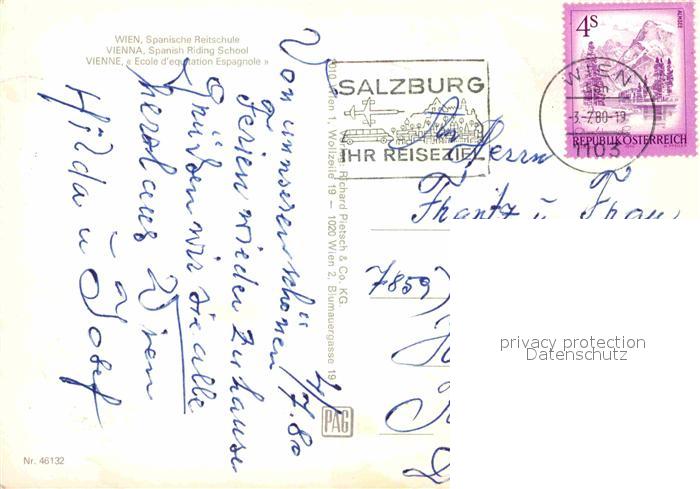 WIEN, Spanische Reitschule
VIENNA, Spanish Riding School
VIENNE, « Ecole d'equitation Espagnole »
2/7.80
Von unnseren schönen
Ferien wieder zuhause
Grüßen wir sie alle
herzl aus Wien
Hilda u Josef
Richard Pietsch & Co. KG.
1010 Wien 1, Wollzeile 19 – 1020 Wien 2, Blumauergasse 19
PAG
Nr. 46132
SALZBURG
IHR REISEZIEL
WIEN
-3.-7.80-19
1103
4S
ALMSEE
REPUBLIK ÖSTERREICH
An Herrn
Frantz u Frau
7859
privacy protection
Datenschutz